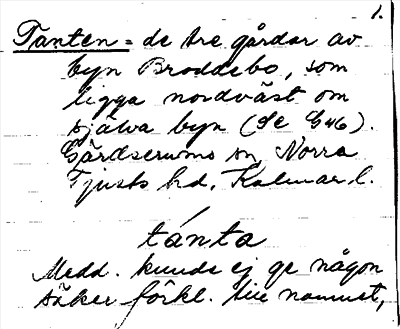 1.
Tanten = de tre gårdar av
byn Broddebo, som
ligga nordväst om
själva byn (Se G46).
Gärdserums sn, Norra
Tjusts hd, Kalmar l.
tánta
Medd. kunde ej ge någon
säker förkl. till namnet,